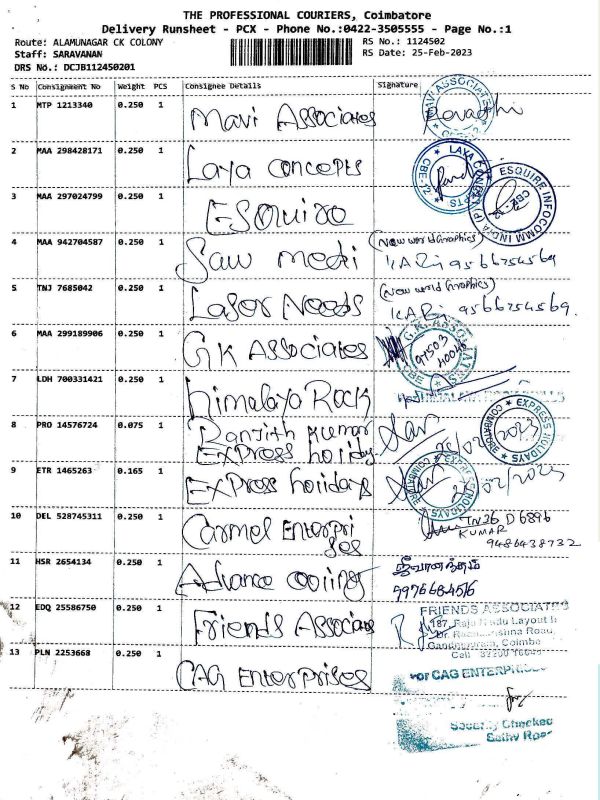 THE PROFESSIONAL COURIERS, Coimbatore
Delivery Runsheet - PCX - Phone No.:0422-3505555 - Page No.:1
Route: ALAMUNAGAR CK COLONY RS No.: 1124502
Staff: SARAVANAN RS Date: 25-Feb-2023
DRS No.: DCJB112450201
S No Consignment No Weight PCS Consignee Details Signature
1 MTP 1213340 0.250 1 Mavi Associates
2 MAA 298428171 0.250 1 Laya concepts
LAYA CONCEPTS CBE-12
3 MAA 297024799 0.250 1 Esquire
ESQUIRE INFOCOMM INDIA (P) CBE-12
4 MAA 942704587 0.250 1 Saw medi (New world Graphics)
KARi 9566754569
5 TNJ 7685042 0.250 1 Laser Needs (New world Graphics)
KARi 9566754569.
6 MAA 299189906 0.250 1 GK Associates
G.K. ASSOCIATES
7 LDH 700331421 0.250 1 himalaya Rock
8 PRO 14576724 0.075 1 Ranjith kumar
Express holiday
EXPRESS HOLIDAYS COIMBATORE
9 ETR 1465263 0.165 1 Express holidays
EXPRESS HOLIDAYS COIMBATORE
10 DEL 528745311 0.250 1 Carmel Enterpri
ses
TN36 D6896
KUMAR
9486438732
11 HSR 2654134 0.250 1 Advance cooling ஜீவானந்தம்
12 EDQ 25586750 0.250 1 Friends Associates
FRIENDS ASSOCIATES
13 PLN 2253668 0.250 1 CAG Enterprises
For CAG ENTERPRISES
Security Checked